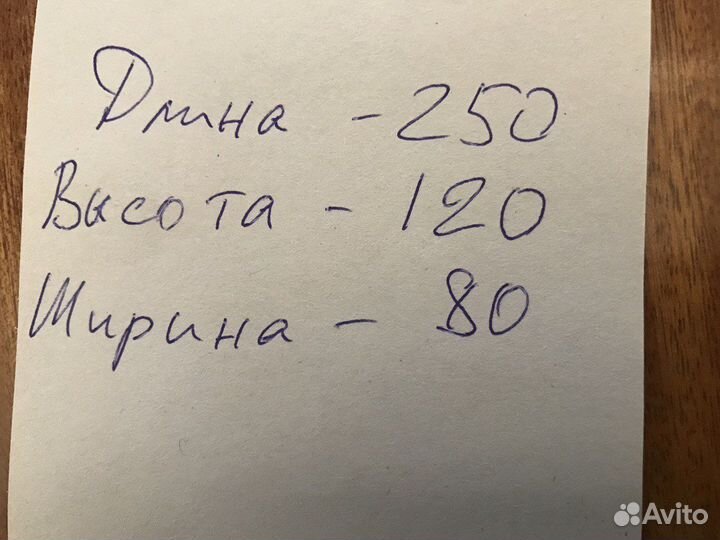 Длина - 250
Высота - 120
Ширина - 80
Avito